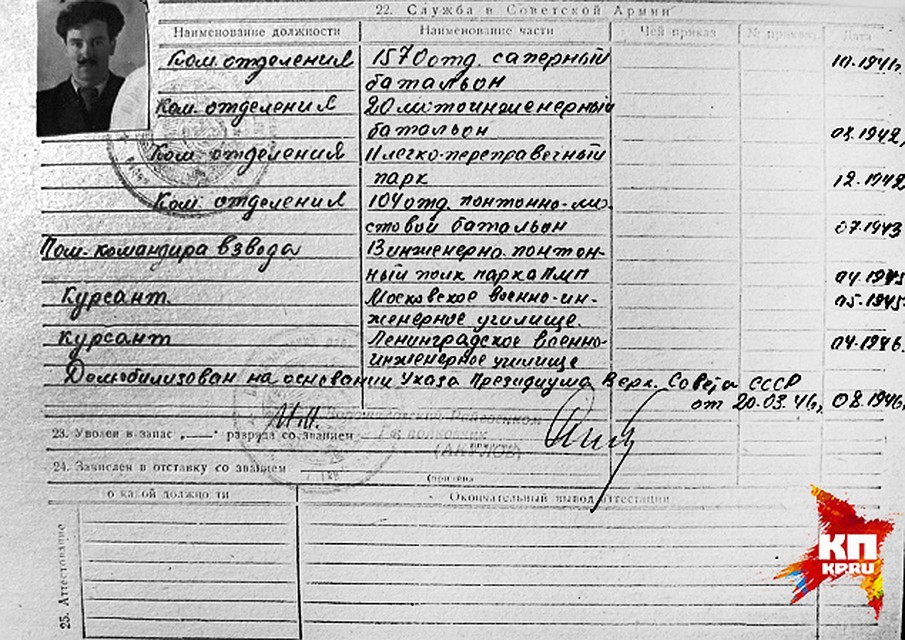 22. Служба в Советской Армии
Наименование должности Наименование части Чей приказ № приказа Дата
Ком. отделения 1570 отд. саперный 10.1941г.
батальон
Ком. отделения 20 мотоинженерный
батальон 08.1942
Ком. отделения 11 легко-переправочный
парк 12.1942
Ком. отделения 104 отд. понтонно-мо-
стовой батальон 07.1943
Пом. командира взвода 13 инженерно-понтон-
ный полк парка ПМП 04.1945
Курсант Московское военно-ин- 05.1945
женерное училище.
Курсант Ленинградское военно- 04.1946.
инженерное училище
Демобилизован на основании Указа Президиума Верх. Совета СССР
от 20.03.46г. 08.1946г.
23. Уволен в запас „——" разряда со званием
(АКУЛОВ)
24. Зачислен в отставку со званием
о какой должности Окончательный вывод аттестации
25. Аттестование
КП
KP.RU